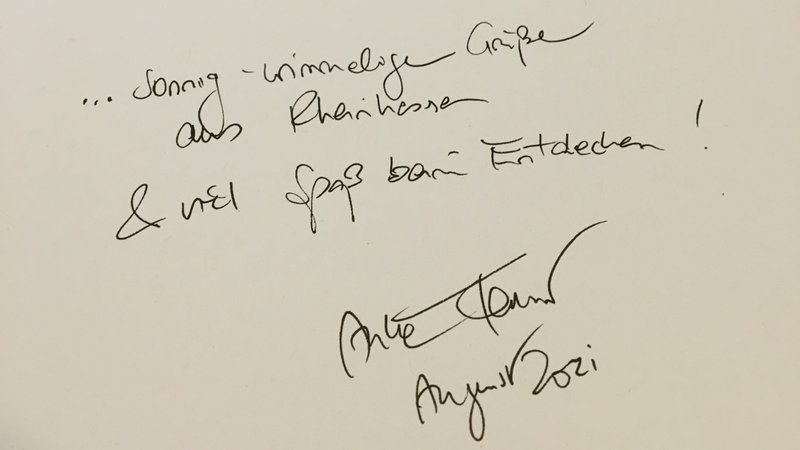 ... sonnig-wimmelige Grüße
aus Rheinhessen
& viel Spaß beim Entdecken!
Anke
August 2021